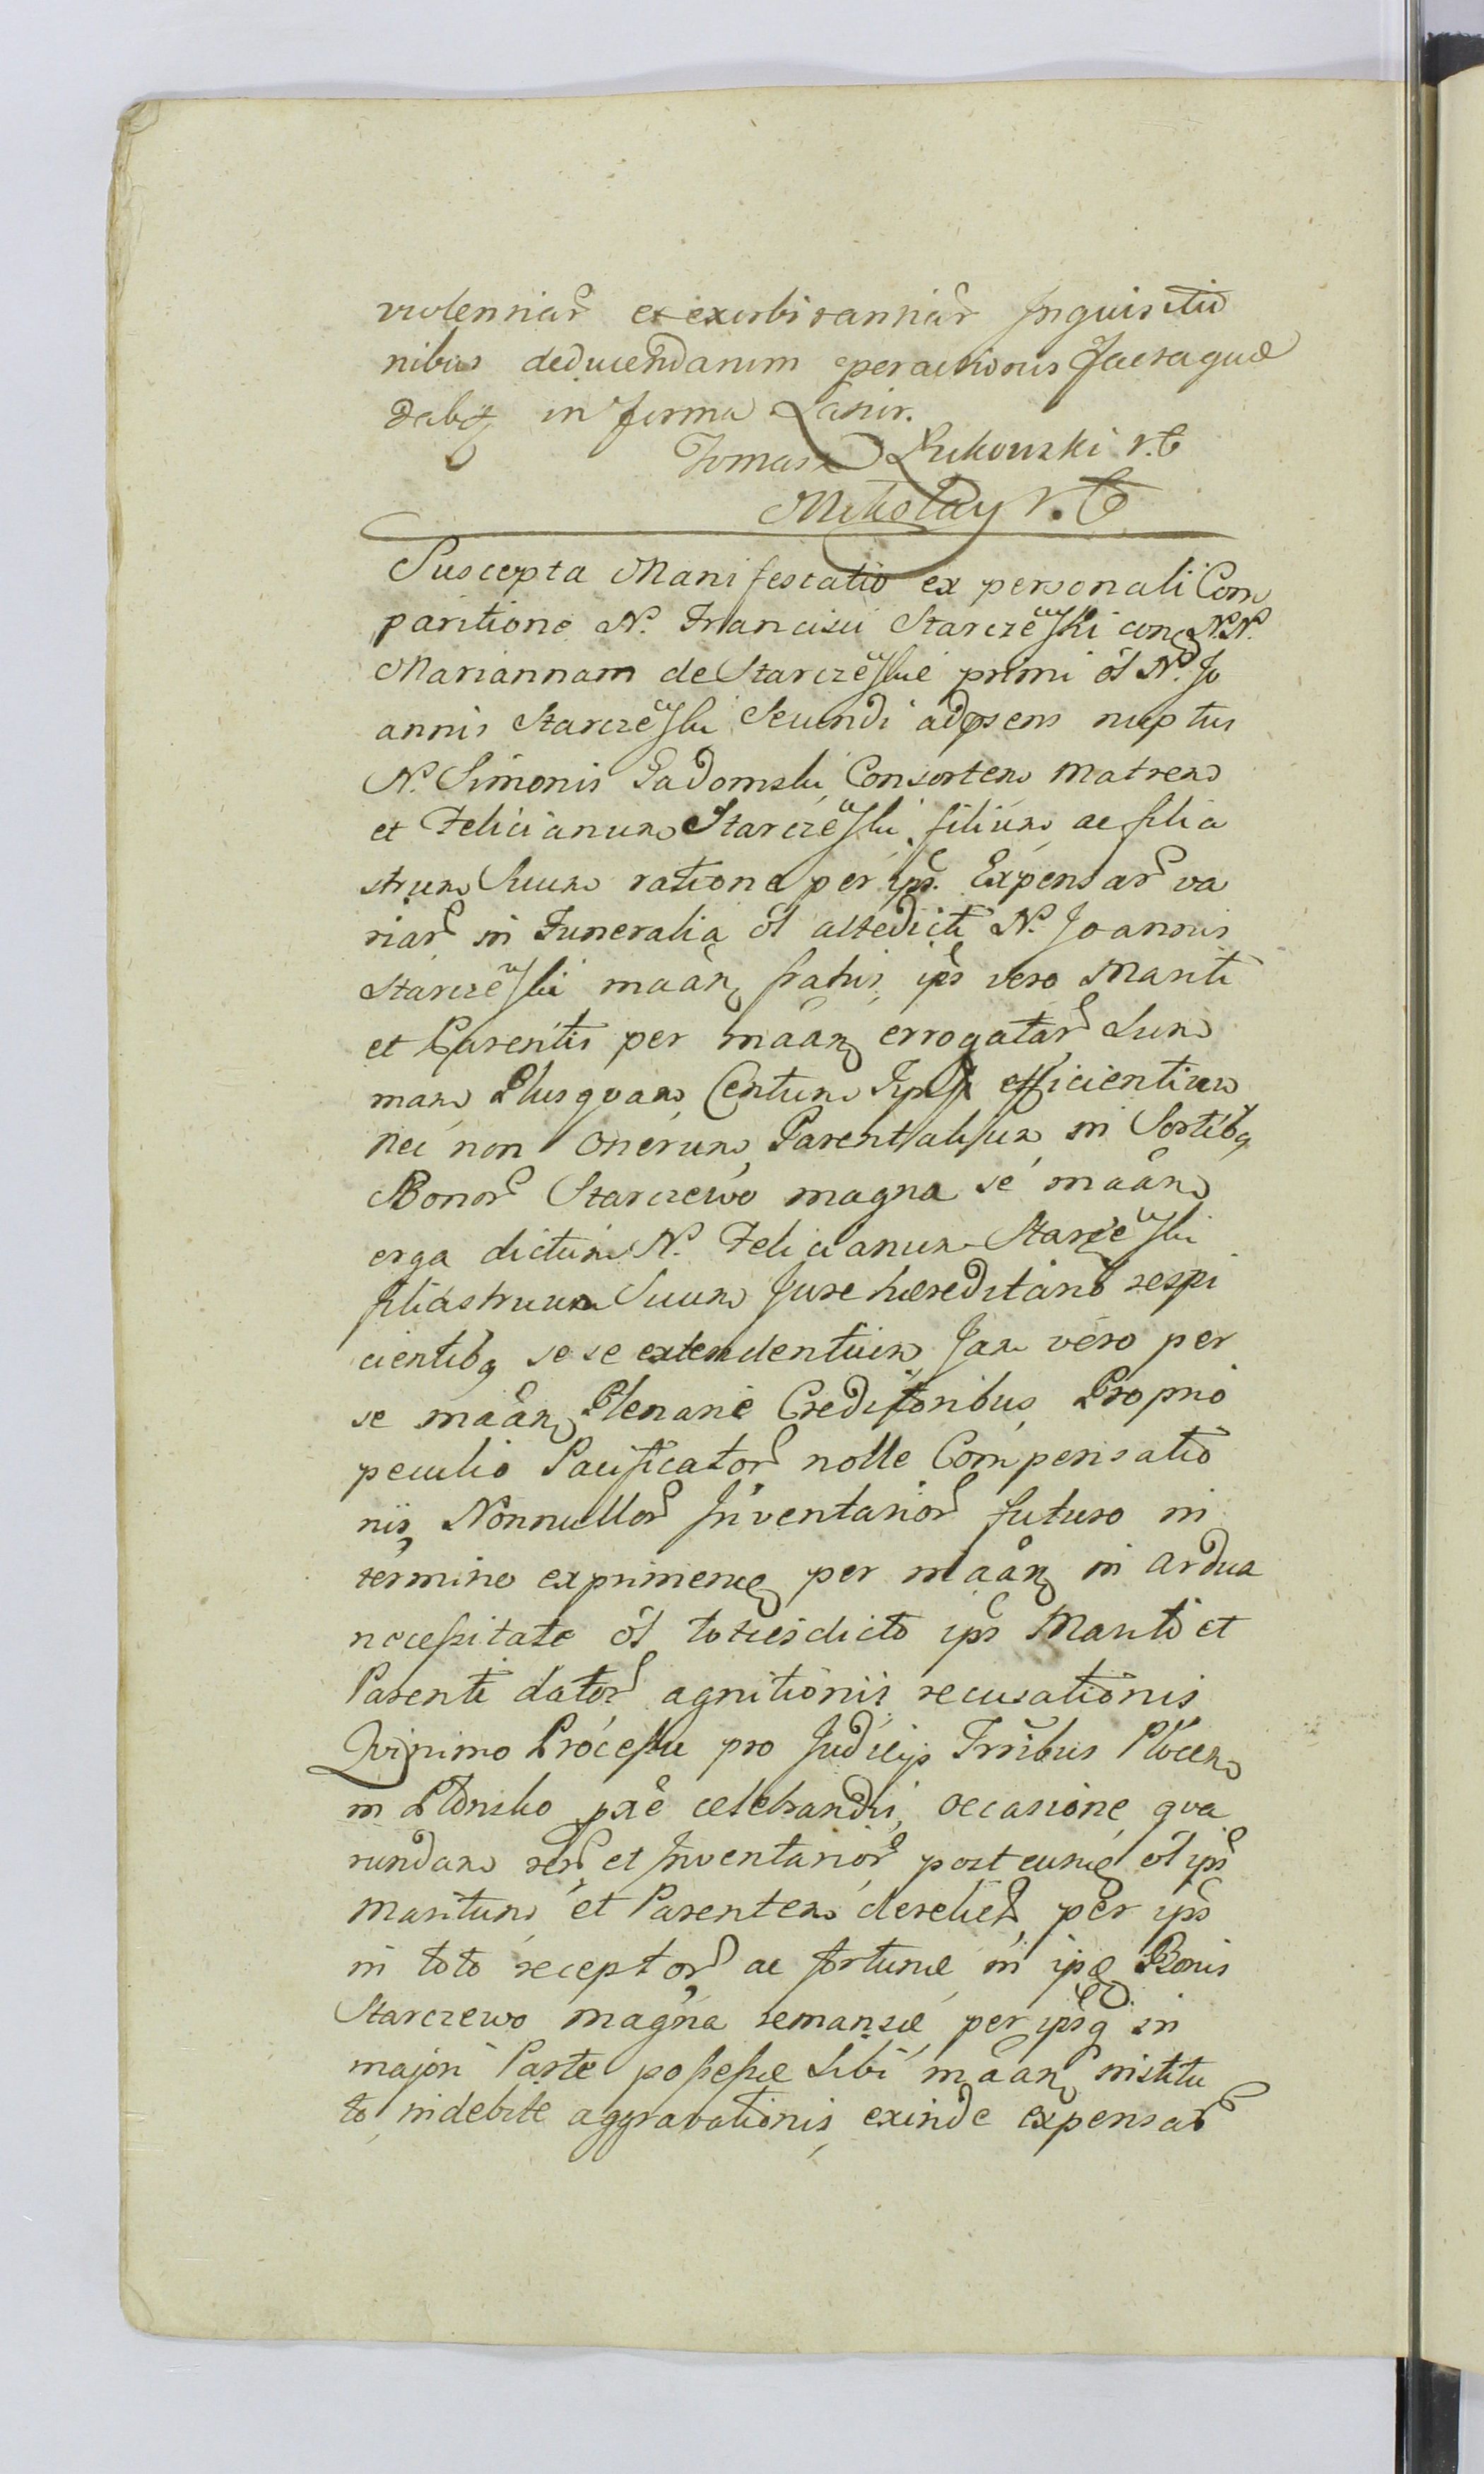 violentiar et exorbitantiar Inquisitio
nibus deducendarum peractionis Factaque
dabit in forma Latior.
Tomasz Łukowski V.C
Mikołay V.C
Suscepta Manifestatio ex personali Com
paritione N. Francisci Starczewski con N.N.
Mariannam de Starczewskie primi ol N. Jo
annis Starczewski Secundi adpsens nuptus
N. Simonis Gadomski Consortem Matrem
et Felicianum Starczewski filium ac filia
strum Suum ratione per ips. Expensar va
riar in Funeralia ol altedicti N. Joannis
Starczewski maan fratris ips vero Mariti
et Parentis per maan errogatar Sum
mam Plusquam Centum efficientium
nec non onerum Parentalium in Sortibq
Bonor Starczewo magna se maan
erga dictum N. Felicianum Starczewski
filiastrum Suum Jure hæreditario respi
cientibq se se extendentium Jam vero per
se maan Plenarie Creditoribus Proprio
peculio Pacificator nolle Compensatio
nis Nonnullor Inventarior futuro in
termino exprimen per maan in ardua
necessitate ol totiesdicto ips Marito et
Parenti dator agnitionis recusationis
Qvinimo Processu pro Judicijs Trribus Plocen
in Płonsko pxe celebrandis occasione qva
rundam rer et Inventarior post eund ol ips
Maritum et Parentem derelict per ips
in toto receptor ac fortunæ in ips Bonis
Starczewo magna remansæ per ipsq in
majori Parte possessæ Sibi maan institu
to indebite aggravationis exinde expensar